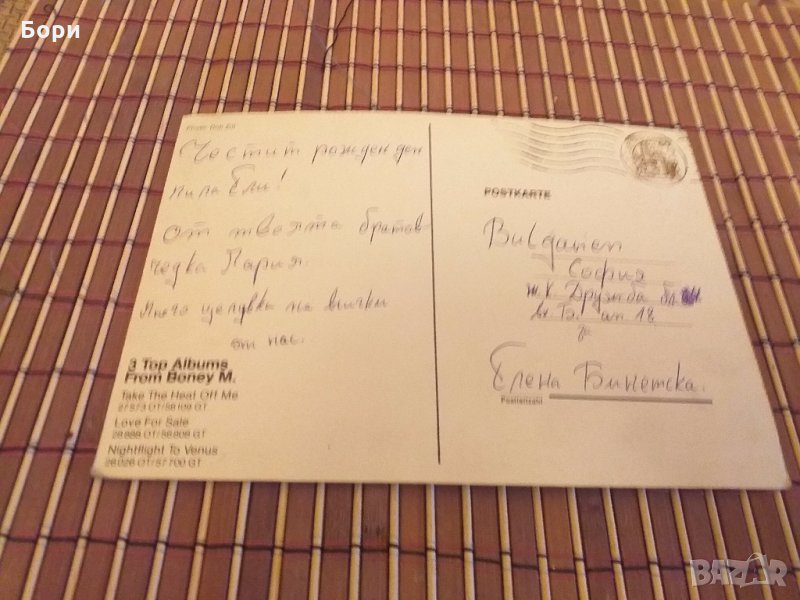 Бори
Честит рожден ден
мила Ели!
От твоята братов-
чедка Мария.
Много целувки на всички
от нас.
3 Top Albums
From Boney M.
Take The Heat Off Me
27 573 OT/56 109 GT
Love For Sale
28 888 OT/56 906 GT
Nightflight To Venus
26 026 OT/57 700 GT
POSTKARTE
Bulgarien
София
ж.к. Дружба бл
вх Б. ап 18
за
Елена Бинетска.
Postleitzahl
BAZAR